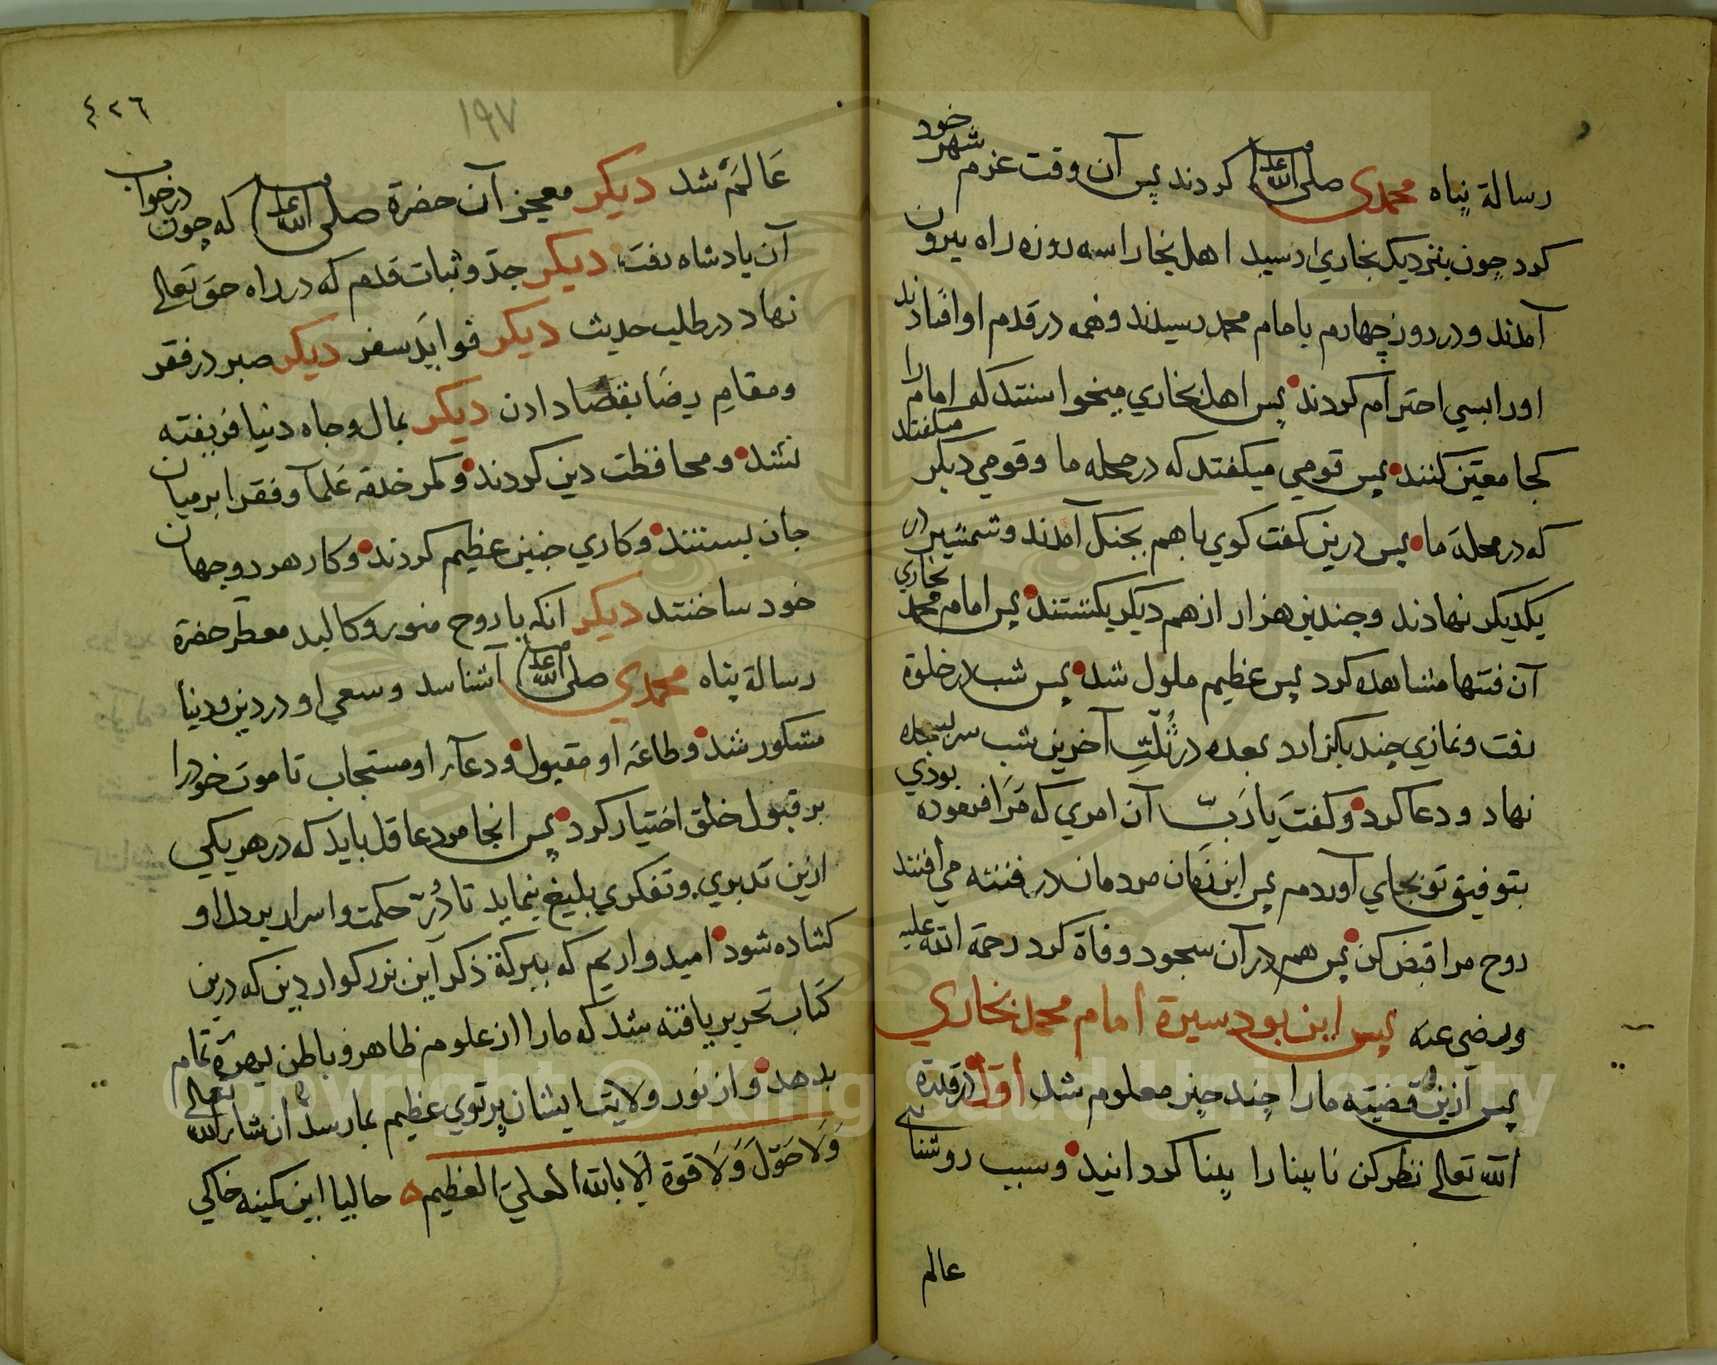 رسالة پناه محمدی صلی الله علیه کردند پس آن وقت عزم شهر خود
کرد چون بنزدیک بخاری رسید اهل بخارا سه روزه راه بیرون
آمدند و در روز چهارم بامام محمد رسیدند و همه در قدم او افتادند
اورا بسی احترام کردند پس اهل بخاری میخواستند که امام را
کجا معین کنند پس قومی میکفتند که در محله ما و قومی دیکر میکفتند
که در محله ما پس درین کفت کوی باهم بجنک آمدند و شمشیر در
یکدیکر نهادند و چندین هزار از هم دیکر بکشتند پس امام محمد بخاری
آن فتنها مشاهده کرد پس عظیم ملول شد پس شب در خلوة
رفت و نمازی چند بکزارد بعده در ثلث آخرین شب سر بسجده
نهاد و دعا کرد و کفت یا رب آن امری که مرا فرموده بودی
بتوفیق تو بجای آوردم پس این زمان مردمان در فتنه می افتند
روح مرا قبض کن پس هم در آن سجود وفاة کرد رحمة الله علیه
ورضی عنه پس این بود سیرة امام محمد بخاری
پس ازین قضیه مارا چند چیز معلوم شد اول در قدرة
الله تعالی نظر کن نابینا را بینا کردانید و سبب روشنائی
عالم
٤٢٦
١٩٧
عالم شد دیکر معجز آن حضرة صلی الله علیه که چون در خواب
آن پادشاه رفت دیکر جد و ثبات قدم که در راه حق تعالی
نهاد در طلب حدیث دیکر فواید سفر دیکر صبر در فقر
و مقام رضا بقضا دادن دیکر بمال و جاه دنیا فریفته
نشد و محافظت دین کردند و کمر خدمة علما و فقرا بر میان
جان بستند و کاری چنین عظیم کردند و کار هر دو جهان
خود ساختند دیکر انکه با روح منور و کالبد معطر حضرة
رسالة پناه محمدی صلی الله علیه آشنا شد و سعی او در دین و دنیا
مشکور شد و طاعة او مقبول و دعاء او مستجاب تا موت خود را
بر قبول خلق اختیار کرد پس انجا مرد عاقل باید که در هر یکی
ازین تدبری و تفکری بلیغ نماید تا در حکمت و اسرار بر دل او
کشاده شود امیدواریم که ببرکة ذکر این بزرکوار دین که درین
کتاب تحریر یافته شد که مارا از علوم ظاهر و باطن بهرهٔ تمام
بدهد و از نور ولایت ایشان پرتوی عظیم بما رسد ان شاء الله تعالی
ولا حول ولا قوة الا بالله العلی العظیم حالیا این کمینه خاکی
Copyright © King Saud University